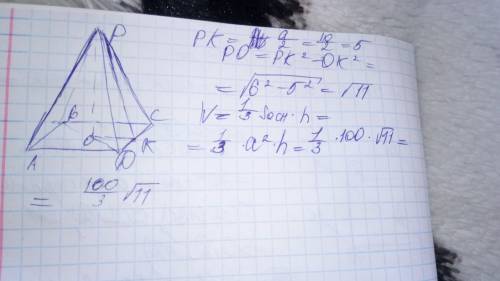 P
B
C
O
K
A
D
PK = a/2 = 10/2 = 5
PO = PK² - OK² =
= √6² - 5² = √11
V = 1/3 Sосн · h =
= 1/3 · a² · h = 1/3 · 100 · √11 =
= 100/3 √11